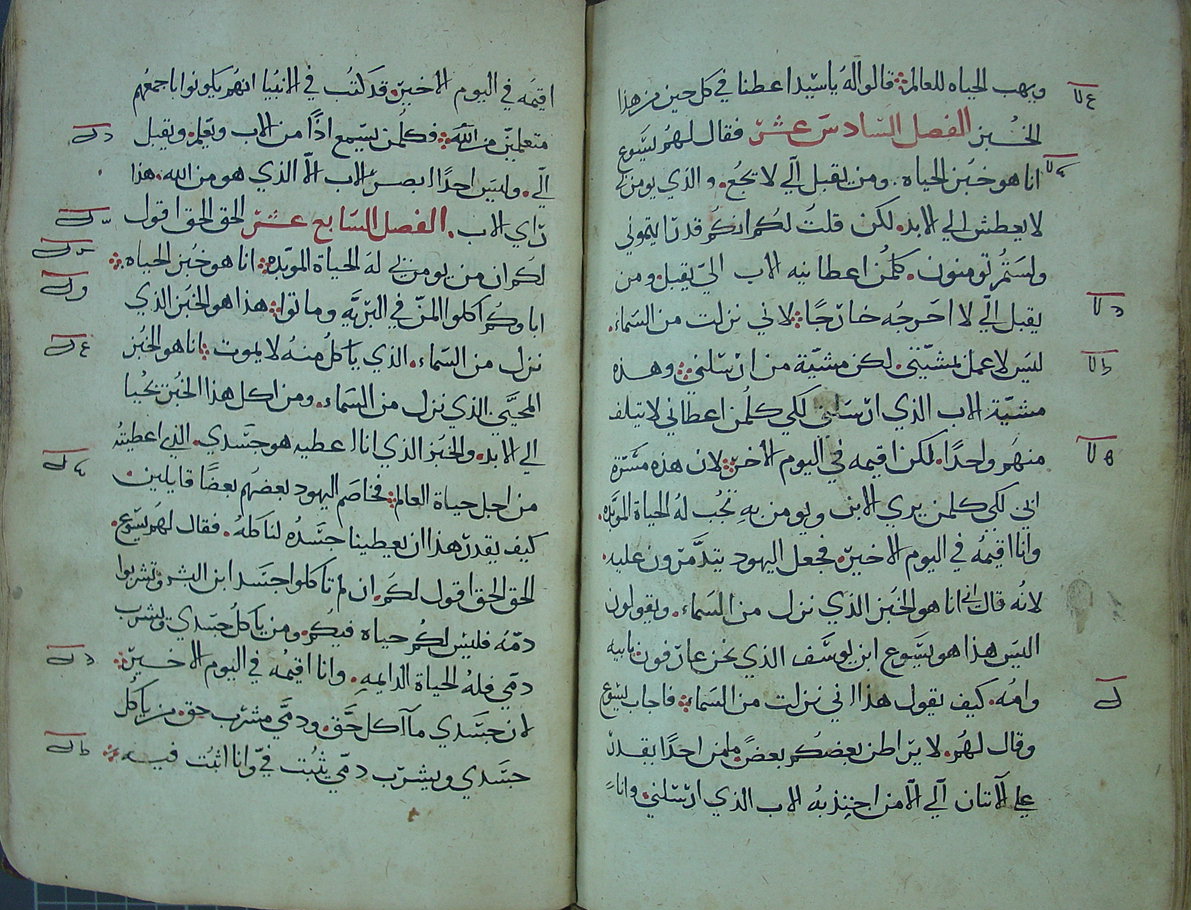 ويهب الحياه للعالم قالوا له ياسيد اعطنا في كل حين من هذا
الخبز الفصل السادس عشر فقال لهم يسوع
انا هو خبز الحياه. ومن يقبل الي لا يجع. والذي يومن بي
لا يعطش الي الابد. لكن قلت لكم انكم قد رايتموني
ولستم تومنون. كلمن اعطانيه الاب اليّ يقبل ومن
يقبل اليّ لا اخرجه خارجًا لاني نزلت من السماء.
ليس لاعمل بمشيتي. لكن مشيّة من ارسلني وهذه
مشيّة الاب الذي ارسلني لكي كلمن اعطاني لا يتلف
منهم واحدًا. لكن اقيمه في اليوم الاخر لان هذه مسّرة
ابي لكي كلمن يري الابن ويومن به تجب له الحياة الموبّده.
وانا اقيمه في اليوم الاخير. فجعل اليهود يتذمّرون عليه.
لانه قال اني انا هو الخبز الذي نزل من السماء. ويقولون
اليس هذا هو يسوع ابن يوسف الذي نحن عارفون بابيه
وامه. كيف يقول هذا اني نزلت من السماء فاجاب يسوع
وقال لهم. لا يراطن بعضكم بعضً ملمن احدًا يقدر
علي الاتان الي الّا من اجتذبه الاب الذي ارسلني. وانا
اقيمه في اليوم الاخير. قد كتب في الانبيا انهم يكونوا باجمعهم
متعلمين من الله فكلمن يسمع اذًا من الاب ويعلم ويقبل
الّي. وليس احدًا ابصر الاب الّا الذي هو من الله. هذا
رّاي الاب. الفصل السابع عشر الحق الحق اقول
لكم ان من يومن بي له الحياة الموبّده انا هو خبز الحياه
اباوكم اكلوا المنّ في البرّيّه وماتوا هذا هو الخبز الذي
نزل من السماء. الذي ياكل منه لا يموت انا هو الخبز
المحيّي الذي نزل من السماء. ومن اكل هذا الخبز يحيا
الي الابد. والخبز الذي انا اعطيه هو جسدي. الذي اعطيته
من اجل حياة العالم فخاصم اليهود بعضهم بعضًا قايلين.
كيف يقدر هذا ان يعطينا جسده لناكله. فقال لهم يسوع.
الحق الحق اقول لكم. ان لم تاكلوا جسد ابن البشر وتشربوا
دمّه فليس لكم حياه فيكم. ومن ياكل جسدي ويشرب
دمي فله الحياة الدايمه. وانا اقيمه في اليوم الاخير
لان جسدي ماآكل حّق. ودمّي مشرب حق. من ياكل
جسدي ويشرب دمّي يثبت فيّ وانا اثبت فيه